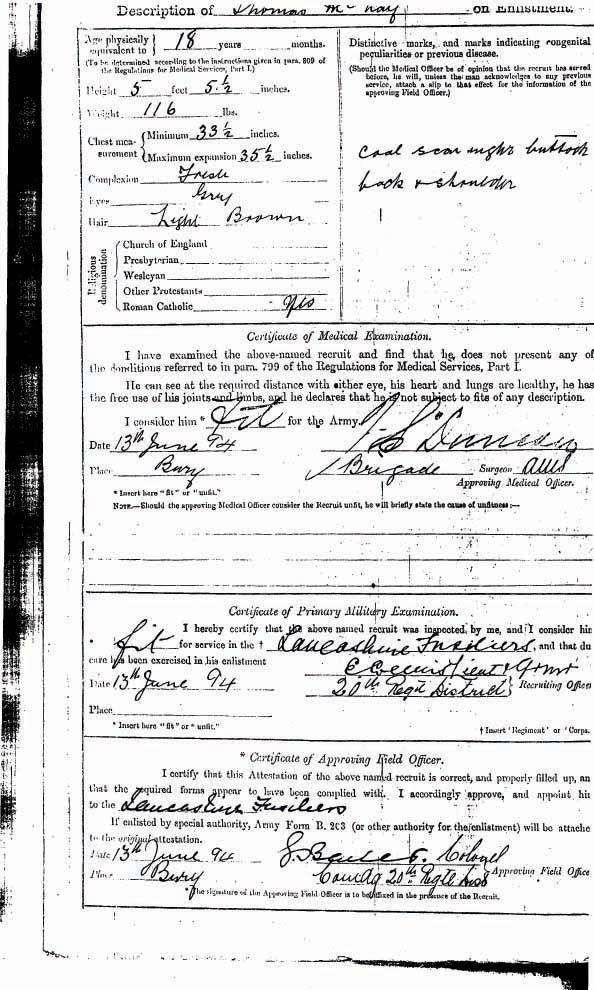 Description of Thomas McNay on Enlistment.
Age physically equivalent to } 18 years months.
(To be determined according to the instructions given in para. 809 of the Regulations for Medical Services, Part I.)
Height 5 feet 5 ½ inches.
Weight 116 lbs.
Chest measurement { Minimum 33 ½ inches.
Maximum expansion 35 ½ inches.
Complexion Fresh
Eyes Grey
Hair Light Brown
Religious denomination {
Church of England
Presbyterian
Wesleyan
Other Protestants
Roman Catholic Yes
Distinctive marks, and marks indicating congenital
peculiarities or previous disease.
(Should the Medical Officer be of opinion that the recruit has served
before, he will, unless the man acknowledges to any previous
service, attach a slip to that effect for the information of the
approving Field Officer.)
Coal scar right buttock
back & shoulder
Certificate of Medical Examination.
I have examined the above-named recruit and find that he does not present any of
the conditions referred to in para. 799 of the Regulations for Medical Services, Part I.
He can see at the required distance with either eye, his heart and lungs are healthy, he has
the free use of his joints and limbs, and he declares that he is not subject to fits of any description.
I consider him * fit for the Army.
Date 13th June 94
Place Bury Brigade Surgeon AMS
Approving Medical Officer.
* Insert here "fit" or "unfit."
NOTE.—Should the approving Medical Officer consider the Recruit unfit, he will briefly state the cause of unfitness:—
Certificate of Primary Military Examination.
I hereby certify that the above named recruit was inspected by me, and I consider him
* fit for service in the † Lancashire Fusiliers, and that du
care has been exercised in his enlistment
Date 13th June 94 20th Regtl District } Recruiting Officer
Place
* Insert here "fit" or "unfit." † Insert 'Regiment' or 'Corps.
* Certificate of Approving Field Officer.
I certify that this Attestation of the above named recruit is correct, and properly filled up, an
that the required forms appear to have been complied with. I accordingly approve, and appoint hi
to the Lancashire Fusiliers
If enlisted by special authority, Army Form B. 203 (or other authority for the enlistment) will be attache
to the original attestation.
Date 13th June 94 Colonel
Place Bury Comdg 20th Regtl Dist Approving Field Office
* The signature of the Approving Field Officer is to be affixed in the presence of the Recruit.